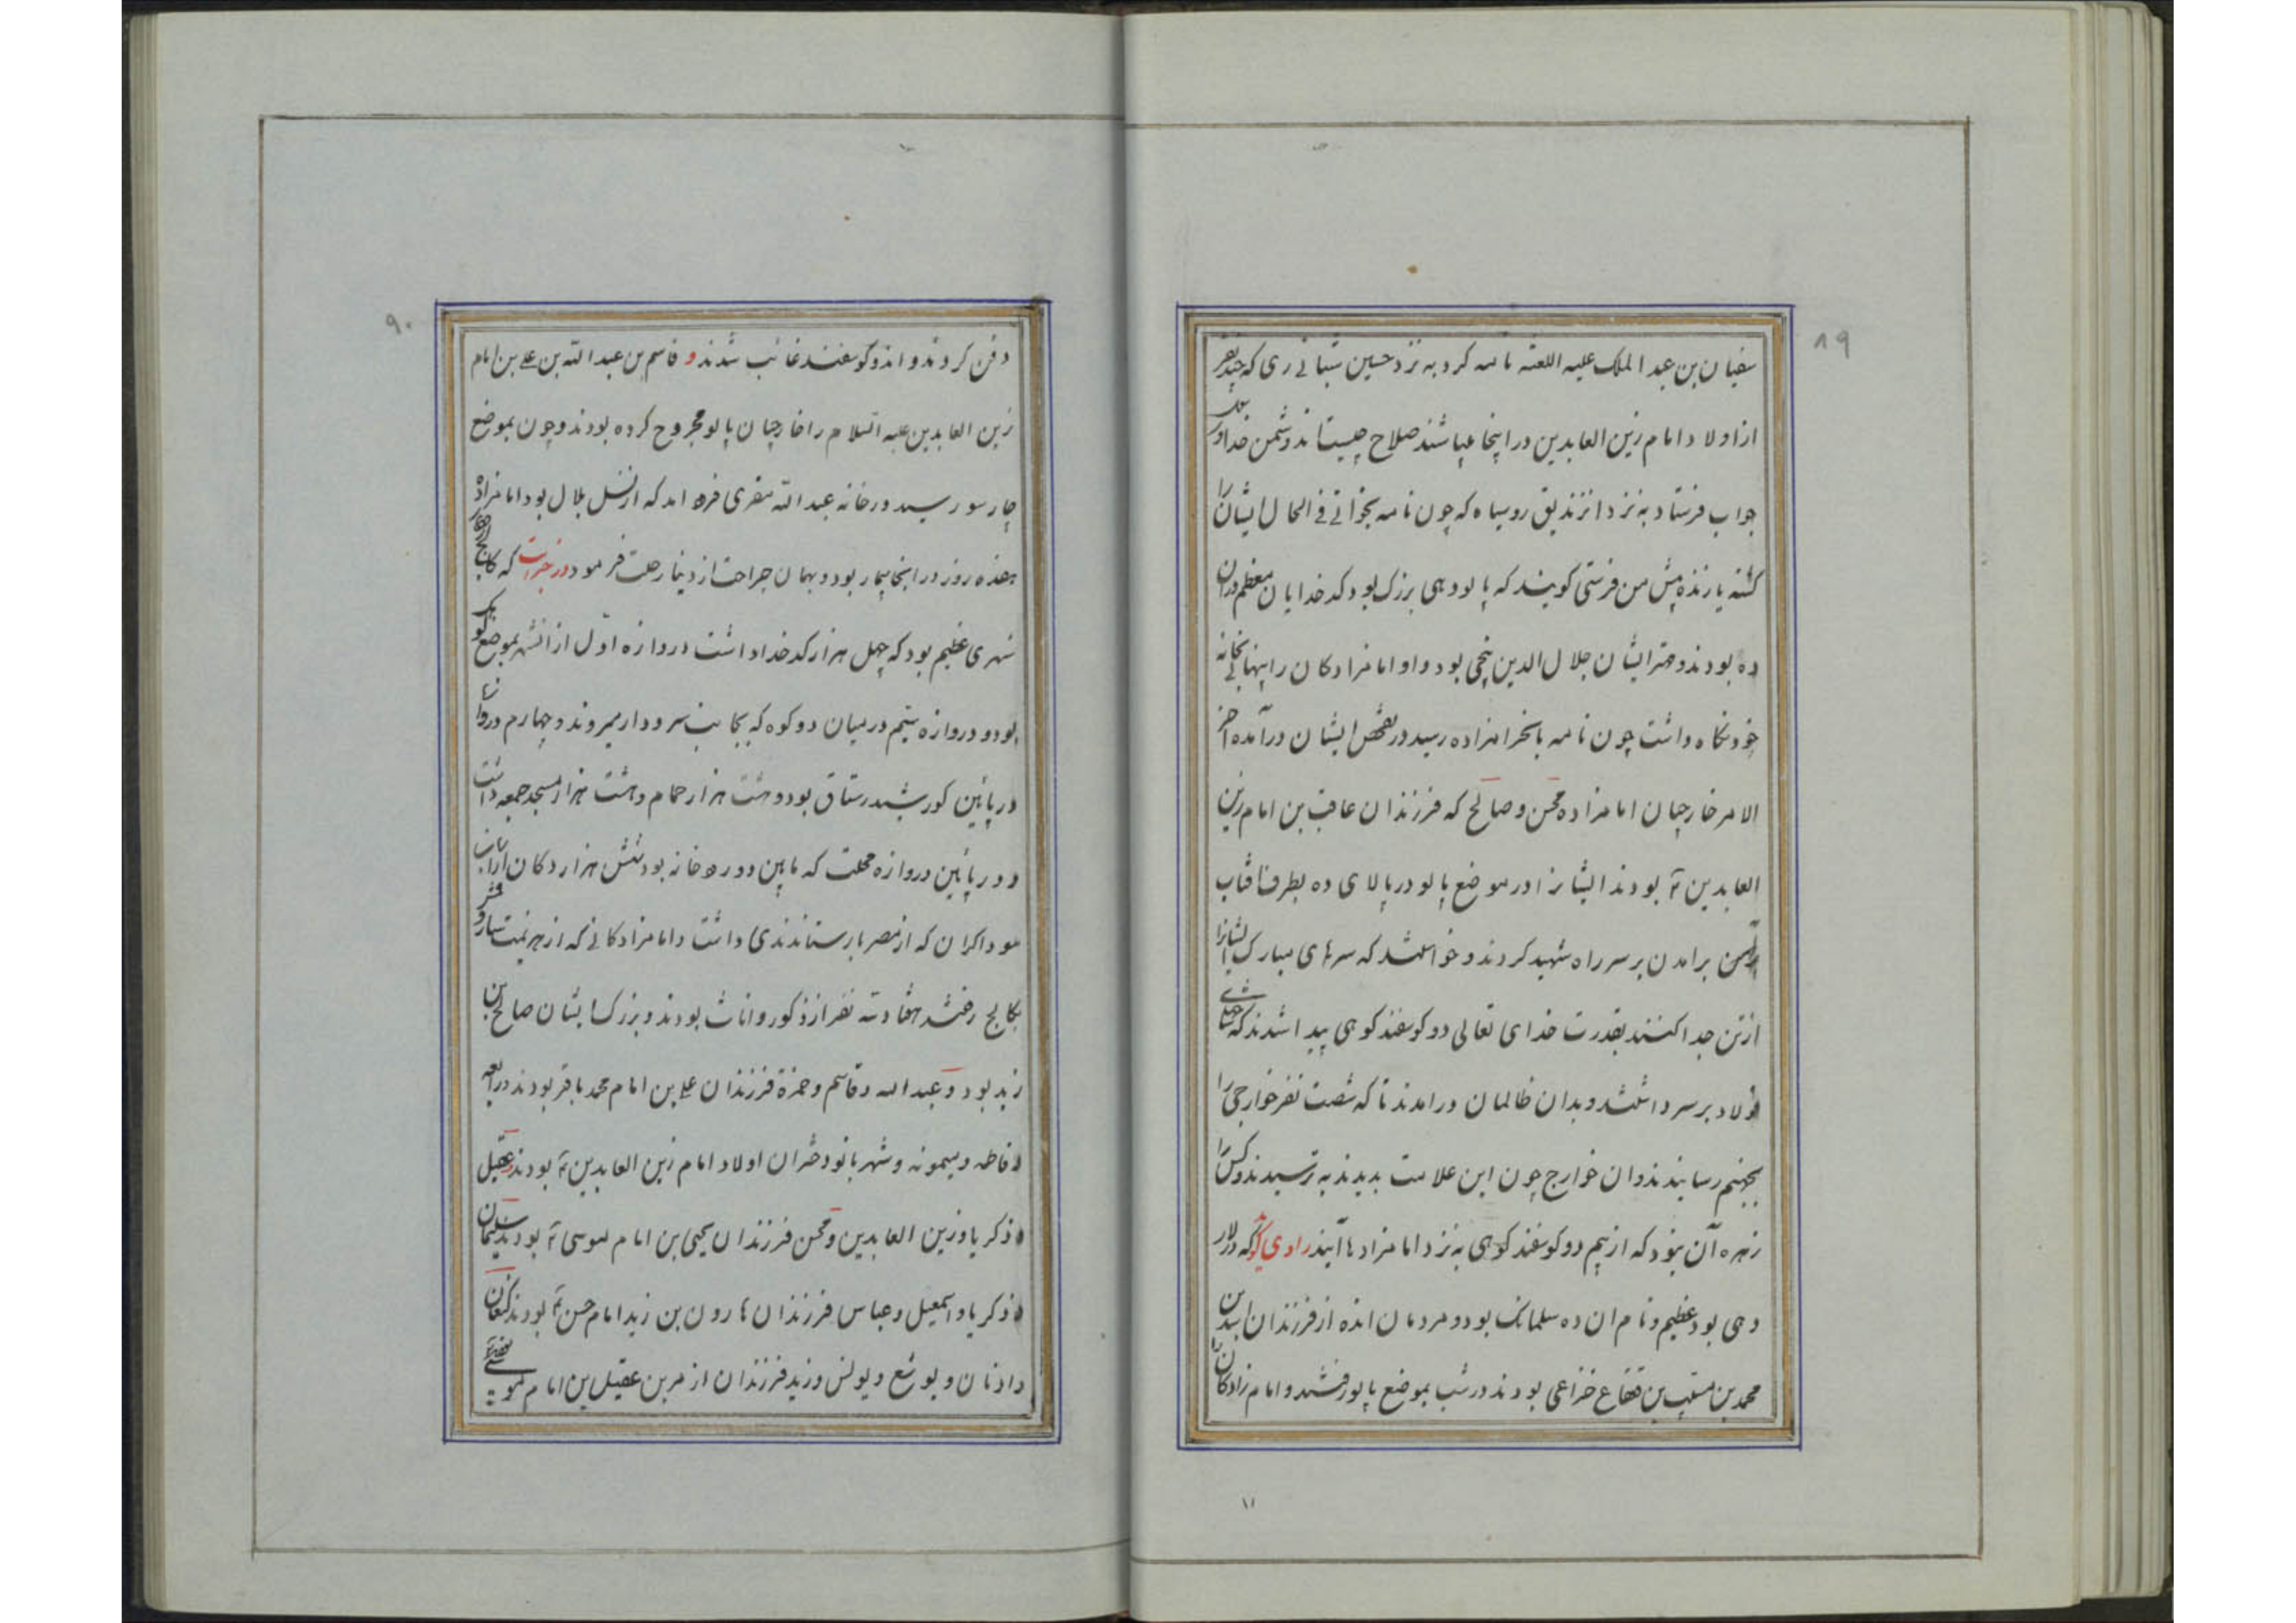 ۸۹
سفیان بن عبد الملک علیه اللعنه نامه کرد به نزد حسین شبانی ری که چند نفر
از اولاد امام زین العابدین در اینجا میباشند صلاح چیست آن دشمن خدا و
جواب فرستاد به نزد انزندیق روسیاه که چون نامه بخوانی فی الحال ایشان را
کشته یا زنده پیش من فرستی گویند که پالو دهی بزرک بود کدخدایان معظم دران
ده بودند و مهتر ایشان جلال الدین بود و او امامزادکان را پنهانی بخانه
خود نگاه داشت چون نامه رسید در تفحص ایشان درآمده آخر
الامر خارجیان امامزاده محسن و صالح که فرزندان عاقب بن امام زین
العابدین ۴ بودند ایشانرا در موضع پالو در بالای ده بطرف افتاب
برامدن بر سر راه شهید کردند و خواستند که سرهای مبارک ایشانرا
از تن جدا کنند بقدرت خدای تعالی دو کوسفند کوهی پیدا شدند که شاخهای
فولاد بر سر داشتند و بدان ظالمان درامدند تا که شصت نفر خوارجی را
بجهنم رسانیدند و ان خوارج چون این علامت بدیدند بترسیدند و کس را
زهره آن نبود که از بیم دو کوسفند کوهی به نزد امامزادها آیند راوی گوید که در لار
دهی بود عظیم و نام ان ده سلمانک بود و مردمان انده از فرزندان
محمد بن مسیب بن قعقاع خزاعی بودند در شب بموضع پالو رفتند و امام زادکان را
۱۱
۹۰
دفن کردند و اندو کوسفند غائب شدند و قاسم بن عبد الله بن علی بن امام
زین العابدین علیه السلام را خارجیان پالو مجروح کرده بودند و چون بموضع
چارسو رسید در خانه عبد الله مقری فرود امد که از نسل بلال بود امامزاده
هفده روز در اینجا بیمار بود و بهمان جراحت از دنیا رحلت فرمود و در خبر است که کالج
شهری عظیم بود که چهل هزار کدخدا داشت دروازه اول از انشهر بموضع
بود و دروازه سیم در میان دو کوه که بجانب میروند و چهارم دروازه
در پایین کورشید رستاق بود و هشت هزار حمام و هشت هزار مسجد جمعه داشت
و در پائین دروازه محلت که مابین دو رودخانه بود شش هزار دکان
سوداکران که از مصر داشت و امامزادکانی که از هزیمت
بکالج رفتند هفتاد و سه نفر از ذکور و اناث بودند و بزرک ایشان صالح بن
زید بود و عبد الله و قاسم و حمزه فرزندان علی بن امام محمد باقر بودند و رابعه
و فاطمه و میمونه و شهربانو دختران اولاد امام زین العابدین ۴ بودند و عقیل
و ذکریا و زین العابدین و محسن فرزندان یحیی بن امام موسی ۴ بودند و سلیمان
و ذکریا و اسمعیل و عباس فرزندان هارون بن زید امام حسن ۴ بودند و کنعان
و ادنان و یوشع و یونس و زید فرزندان ازهر بن عقیل بن امام موسی